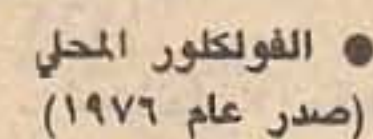 ● الفولكلور المحلي
(صدر عام ١٩٧٦)